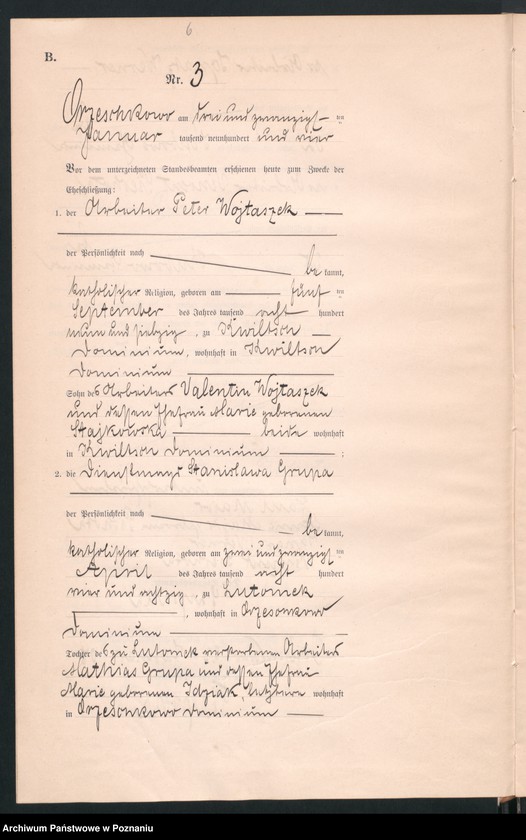 6
B.
Nr. 3
Orzeschkowo am drei und zwanzigsten
Januar tausend neunhundert und vier
Vor dem unterzeichneten Standesbeamten erschienen heute zum Zwecke der
Eheschließung:
1. der Arbeiter Peter Wojtaszek
der Persönlichkeit nach
be kannt,
katholischer Religion, geboren am fünf ten
September des Jahres tausend acht hundert
neun und siebzig, zu Kwiltsch
Dominium, wohnhaft in Kwiltsch
Dominium
Sohn des Arbeiters Valentin Wojtaszek
und dessen Ehefrau Marie geborenen
Stajkowska beide wohnhaft
in Kwiltsch Dominium ;
2. die Dienstmagd Stanislawa Grupa
der Persönlichkeit nach
be kannt,
katholischer Religion, geboren am zwei und zwanzigsten
April des Jahres tausend acht hundert
vier und achtzig, zu Lutomek
, wohnhaft in Orzeschkowo
Dominium
Tochter des zu Lutomek verstorbenen Arbeiters
Mathias Grupa und dessen Ehefrau
Marie geborenen Idziak, letztere wohnhaft
in Orzeschkowo Dominium
Archiwum Państwowe w Poznaniu